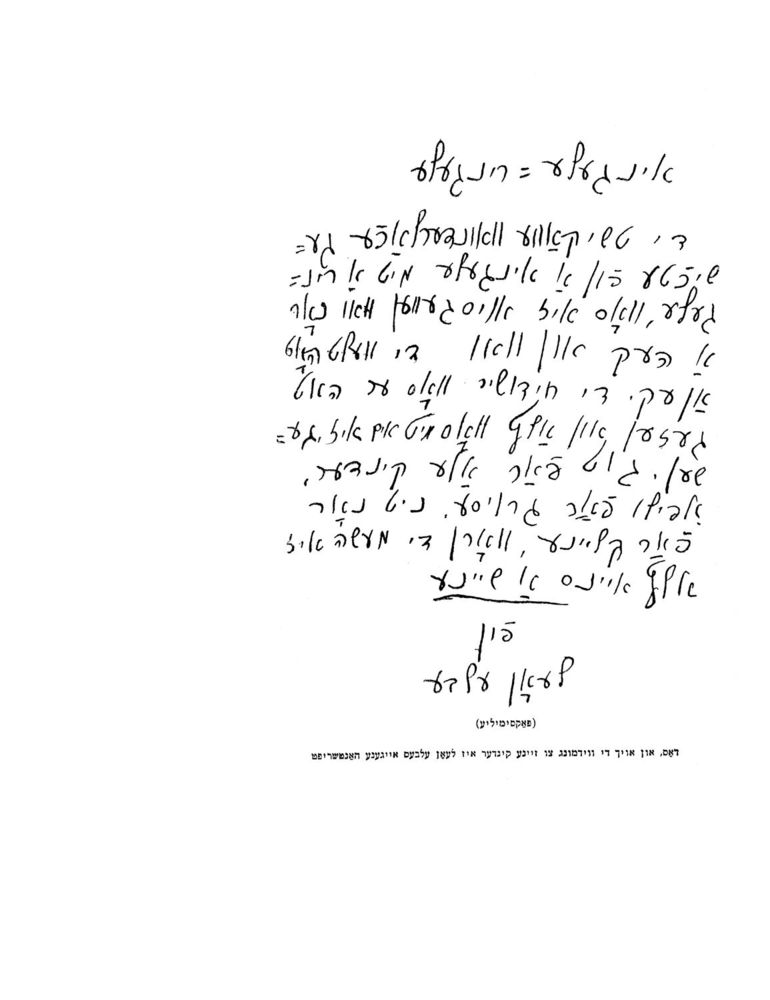 אינגעלע = רינגעלע
די טשיקאַווע וואונדערלאַכע גע=
שיכטע פֿון אַ אינגעלע מיט אַ רינ=
געלע, וואָס איז אויסגעווען וואו נאָר
אַ העק און וואו די וועלט האָט
אַן עק. די חידושים וואָס ער האט
געזען און אַלץ וואָס מיט אים איז גע=
שען. גוט פֿאַר אַלע קינדער,
אפילו פֿאַר גרויסע, ניט נאָר
פֿאַר קליינע, וואָרן די מעשה איז
אלץ איינס אַ שיינע
פֿון
לעאָן עלבע
(פאַקסימיליע)
דאָס, און אויך די ווידמונג צו זיינע קינדער איז לעאָן עלבעס אייגענע האַנטשריפט